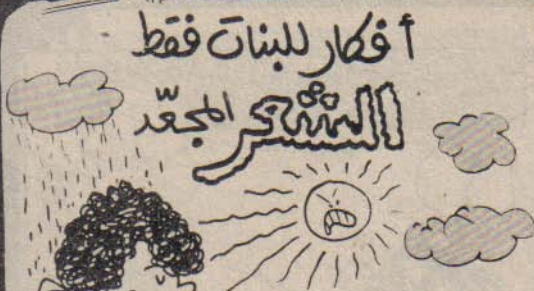 أفكار للبنات فقط
الشعر المجعّد